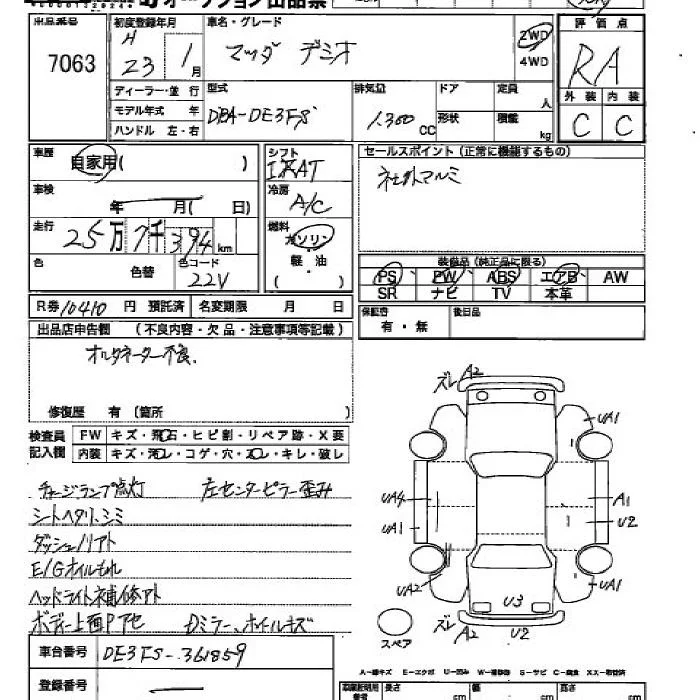 オークション出品票
出品番号 初度登録年月 車名・グレード 評価点
7063 H 23 1月 マツダ デミオ 2WD 4WD RA
ディーラー・並行 型式 排気量 ドア 定員 人 外装 内装
モデル年式 年 DBA-DE3FS 1,300 CC 形状 積載 kg C C
ハンドル 左・右
車歴 自家用( ) シフト AT セールスポイント(正常に機能するもの)
車検 年 月( 日) 冷房 A/C 社外アルミ
走行 25万7千394km 燃料 ガソリン 軽・油 ( )
色 色替 色コード 22V
装備品(純正品に限る)
PS PW ABS エアB AW
SR ナビ TV 本革
R券 10410 円 預託済 名変期限 月 日 保証書 有・無 後日品
出品店申告欄 (不良内容・欠品・注意事項等記載)
オルタネーター不良.
修復歴 有(箇所 )
検査員記入欄 FW キズ・飛石・ヒビ割・リペア跡・X要
内装 キズ・汚レ・コゲ・穴・スレ・キレ・破レ
チャージランプ点灯 左センターピラー歪み
シートヘタリ、シミ
ダッシュノリアト
E/Gオイルもれ
ヘッドライト補修アト
ボディー上面Pアセ Dミラー、ホイルキズ
車台番号 DE3FS-361859
登録番号
ズレ A2
UA1
UA4 A1
UA1 U2
UA2 UA1
U3
スペア ズレ A2 U2
A－線キズ E－エクボ U－凹み W－補修跡 S－サビ C－腐食 XX－取替済
長さ cm 幅 cm 高さ cm